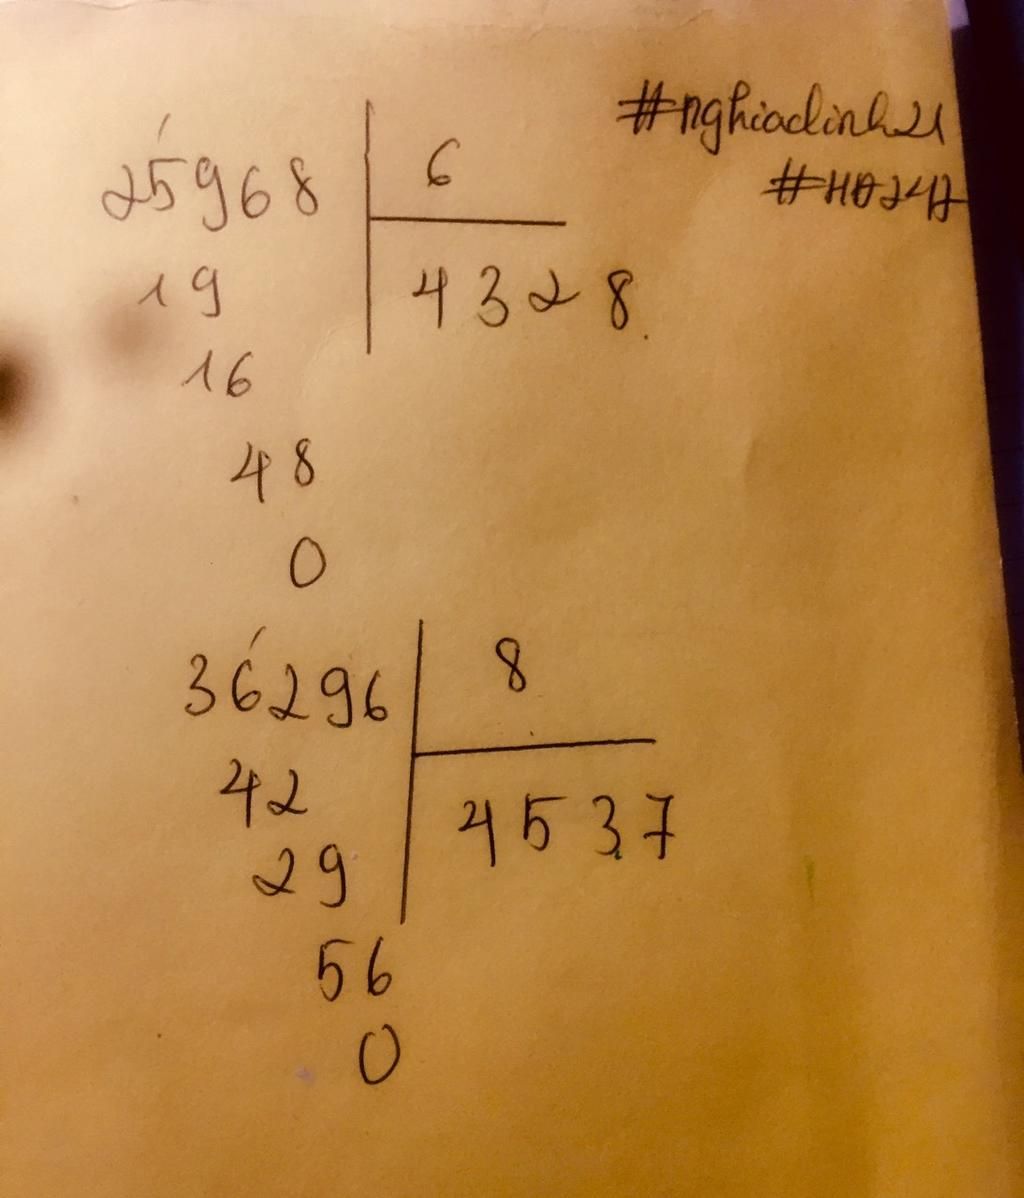 #nghiadinh21
#HĐ247
25968 6
19 4328
16
48
0
36296 8
42 4537
29
56
0